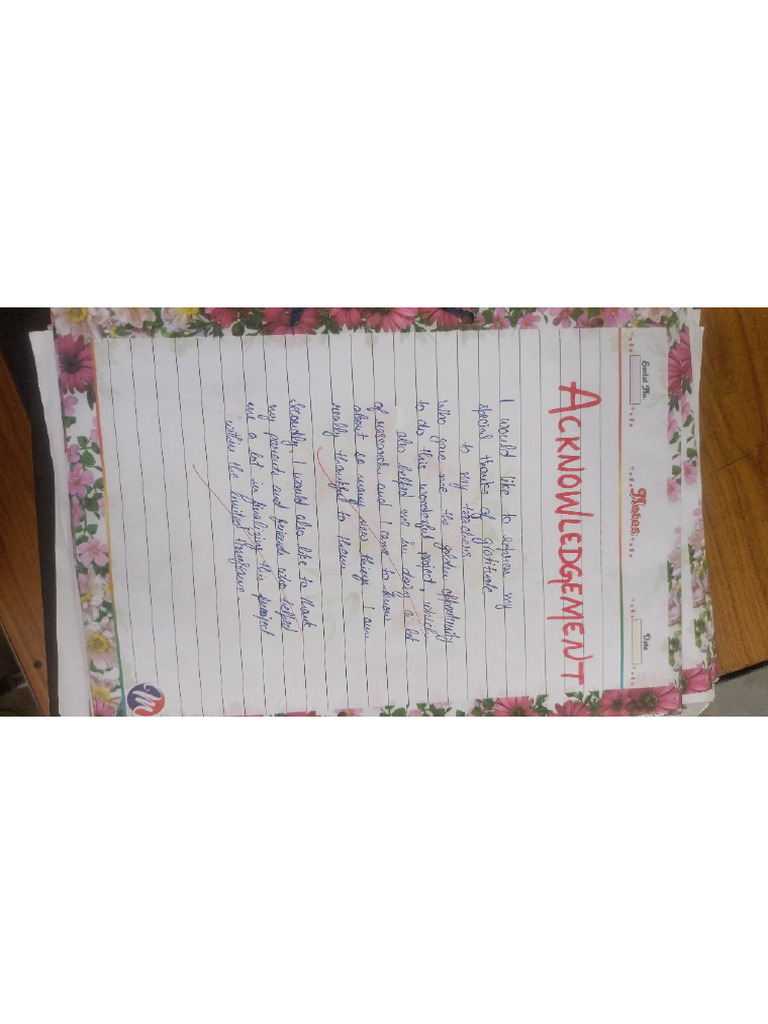 Serial No.
Notes
Date
ACKNOWLEDGEMENT
I would like to express my
special thanks of gratitude
to my teachers
Who gave me the golden opportunity
to do this wonderful project, which
also helped me in doing a lot
of research and I came to know
about so many new things I am
really thankful to them.
Secondly, I would also like to thank
my parents and friends who helped
me a lot in finalizing this project
within the limited timeframe.
m